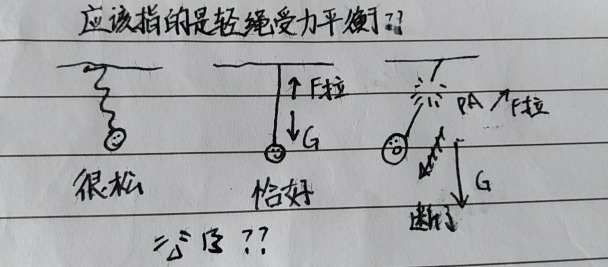 应该指的是轻绳受力平衡??
F拉
G
PA
F拉
G
很松
恰好
断了
??